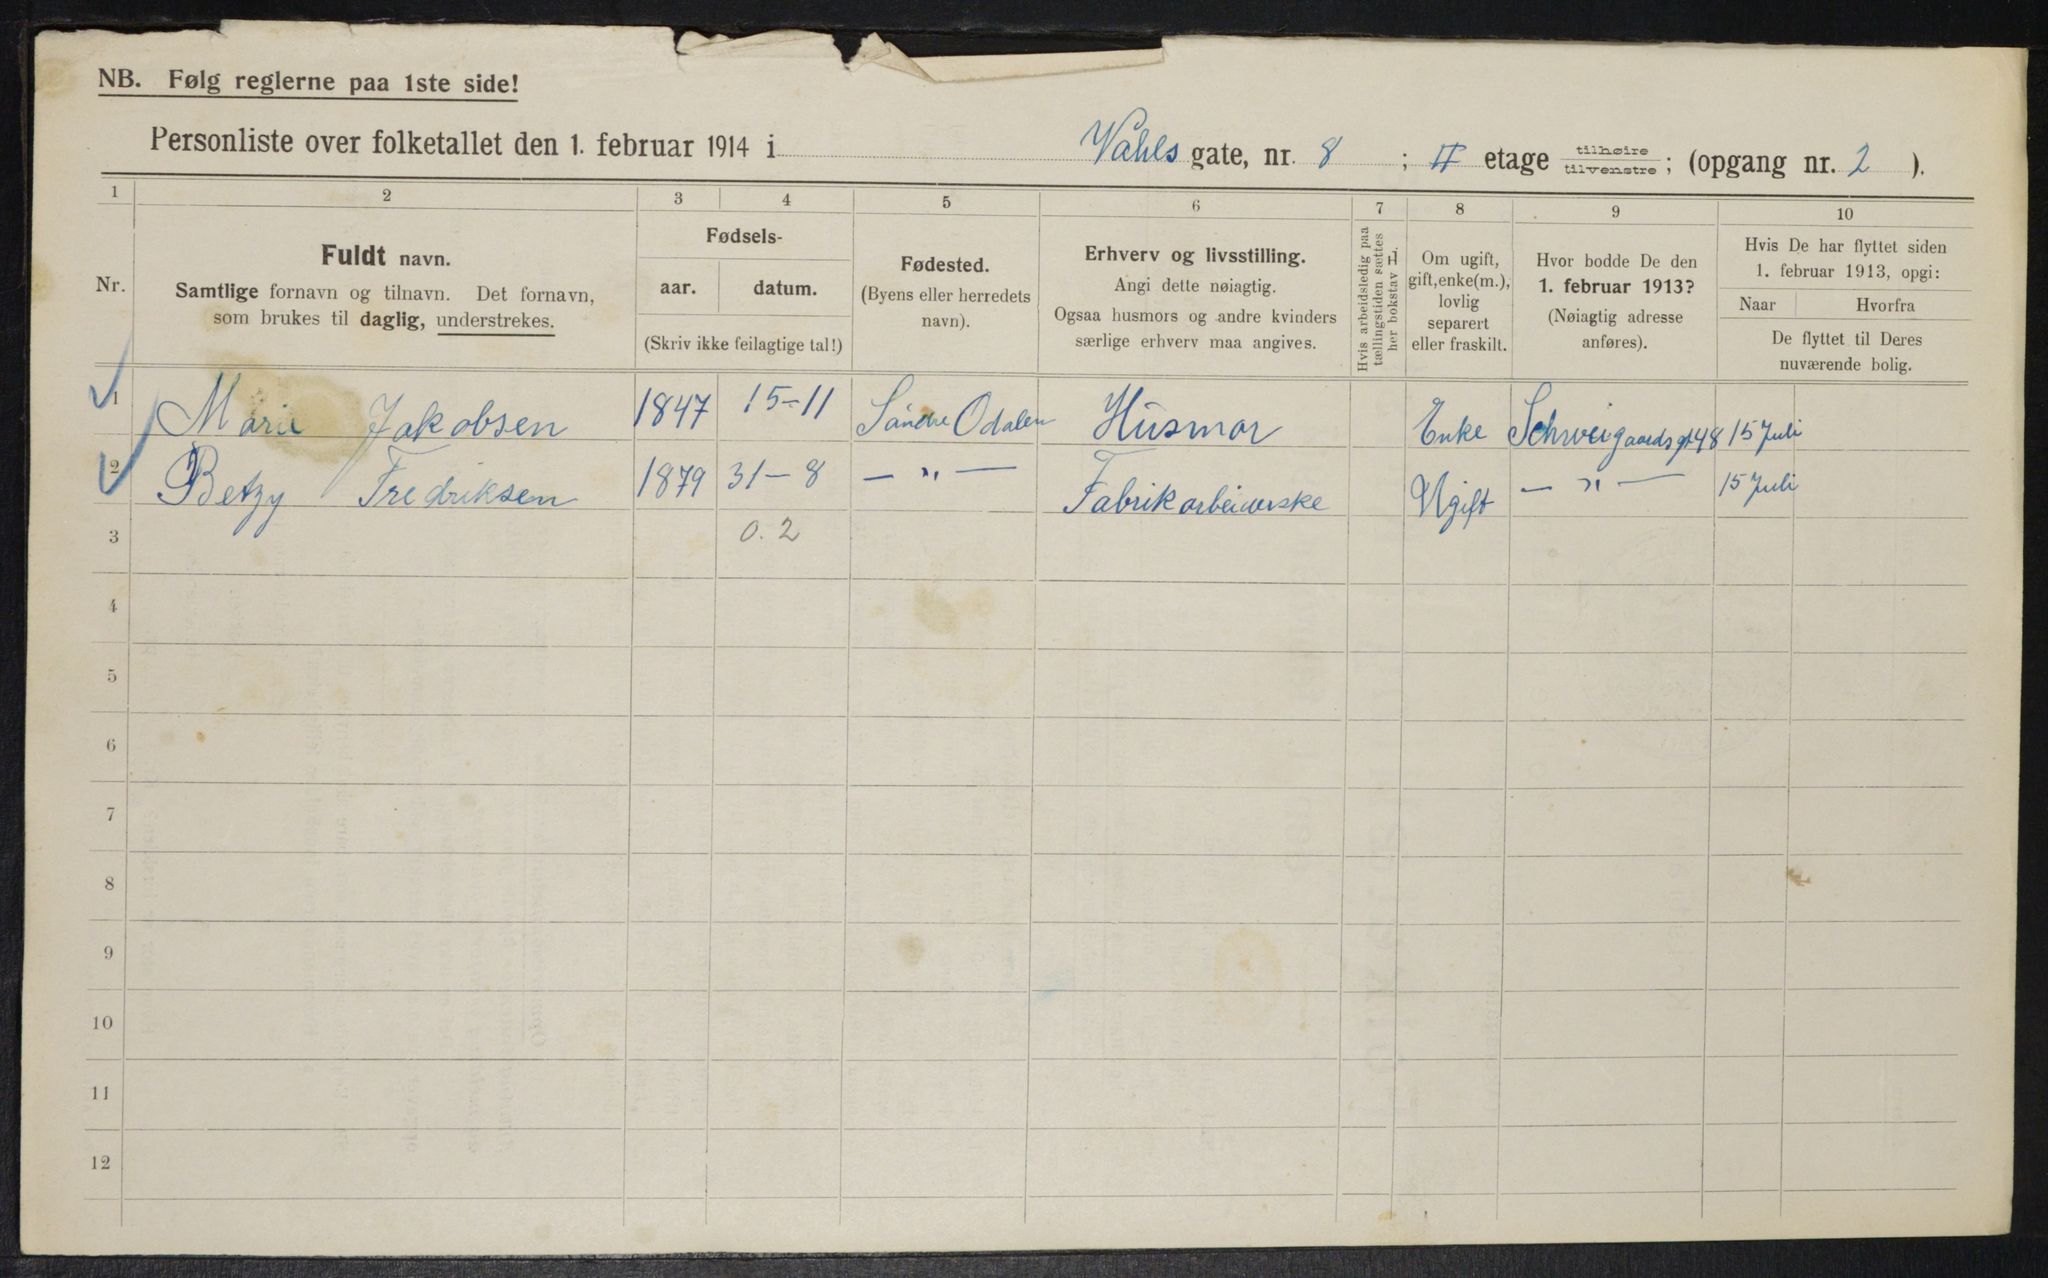 NB. Følg reglerne paa 1ste side!
Personliste over folketallet den 1. februar 1914 i Vahls gate, nr. 8 ; II etage tilhøire tilvenstre ; (opgang nr. 2 ).
1 2 3 4 5 6 7 8 9 10
Nr.
Fuldt navn.
Samtlige fornavn og tilnavn. Det fornavn,
som brukes til daglig, understrekes.
Fødsels-
aar. datum.
(Skriv ikke feilagtige tal!)
Fødested.
(Byens eller herredets
navn).
Erhverv og livsstilling.
Angi dette nøiagtig.
Ogsaa husmors og andre kvinders
særlige erhverv maa angives.
Hvis arbeidsledig paa
tællingstiden sættes
her bokstav L.
Om ugift,
gift, enke(m.),
lovlig
separert
eller fraskilt.
Hvor bodde De den
1. februar 1913?
(Nøiagtig adresse
anføres).
Hvis De har flyttet siden
1. februar 1913, opgi:
Naar Hvorfra
De flyttet til Deres
nuværende bolig.
1 Marie Jakobsen 1847 15-11 Söndre Odalen Husmor Enke Schweigaards gt 48 15 Juli
2 Betzy Fredriksen 1879 31-8 — " — Fabrikarbeiderske Ugift — " — 15 Juli
3 0.2
4
5
6
7
8
9
10
11
12